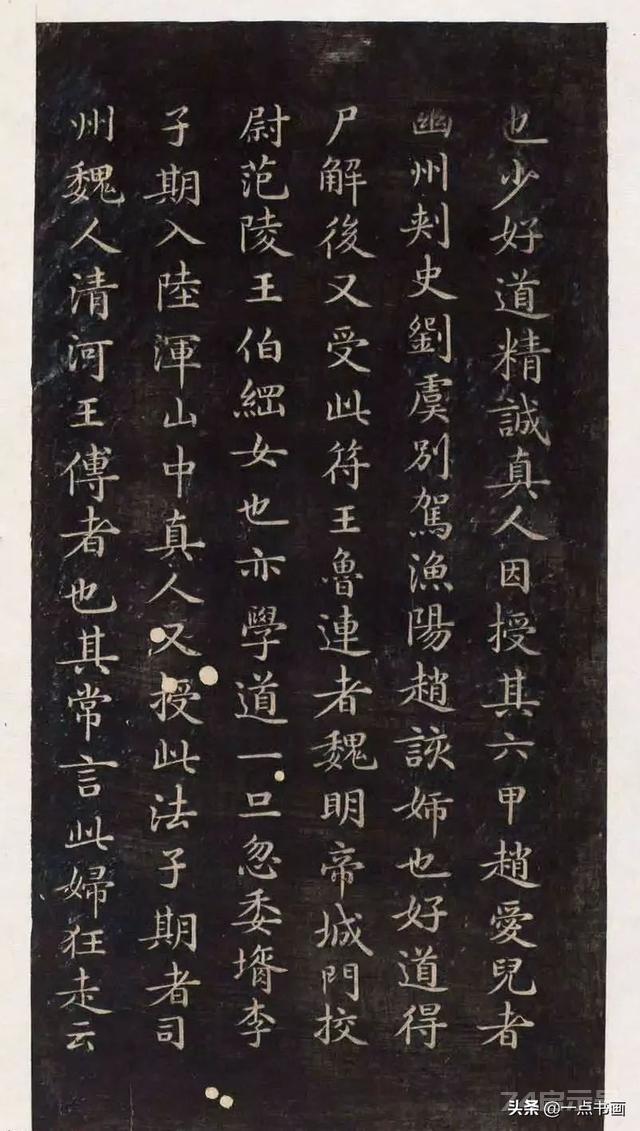 也少好道精誠真人因授其六甲趙愛兒者
幽州刾史劉虞別駕漁陽趙該姉也好道得
尸解後又受此符王魯連者魏明帝城門挍
尉范陵王伯綱女也亦學道一旦忽委壻李
子期入陸渾山中真人又授此法子期者司
州魏人清河王傅者也其常言此婦狂走云
头条 @一点书画